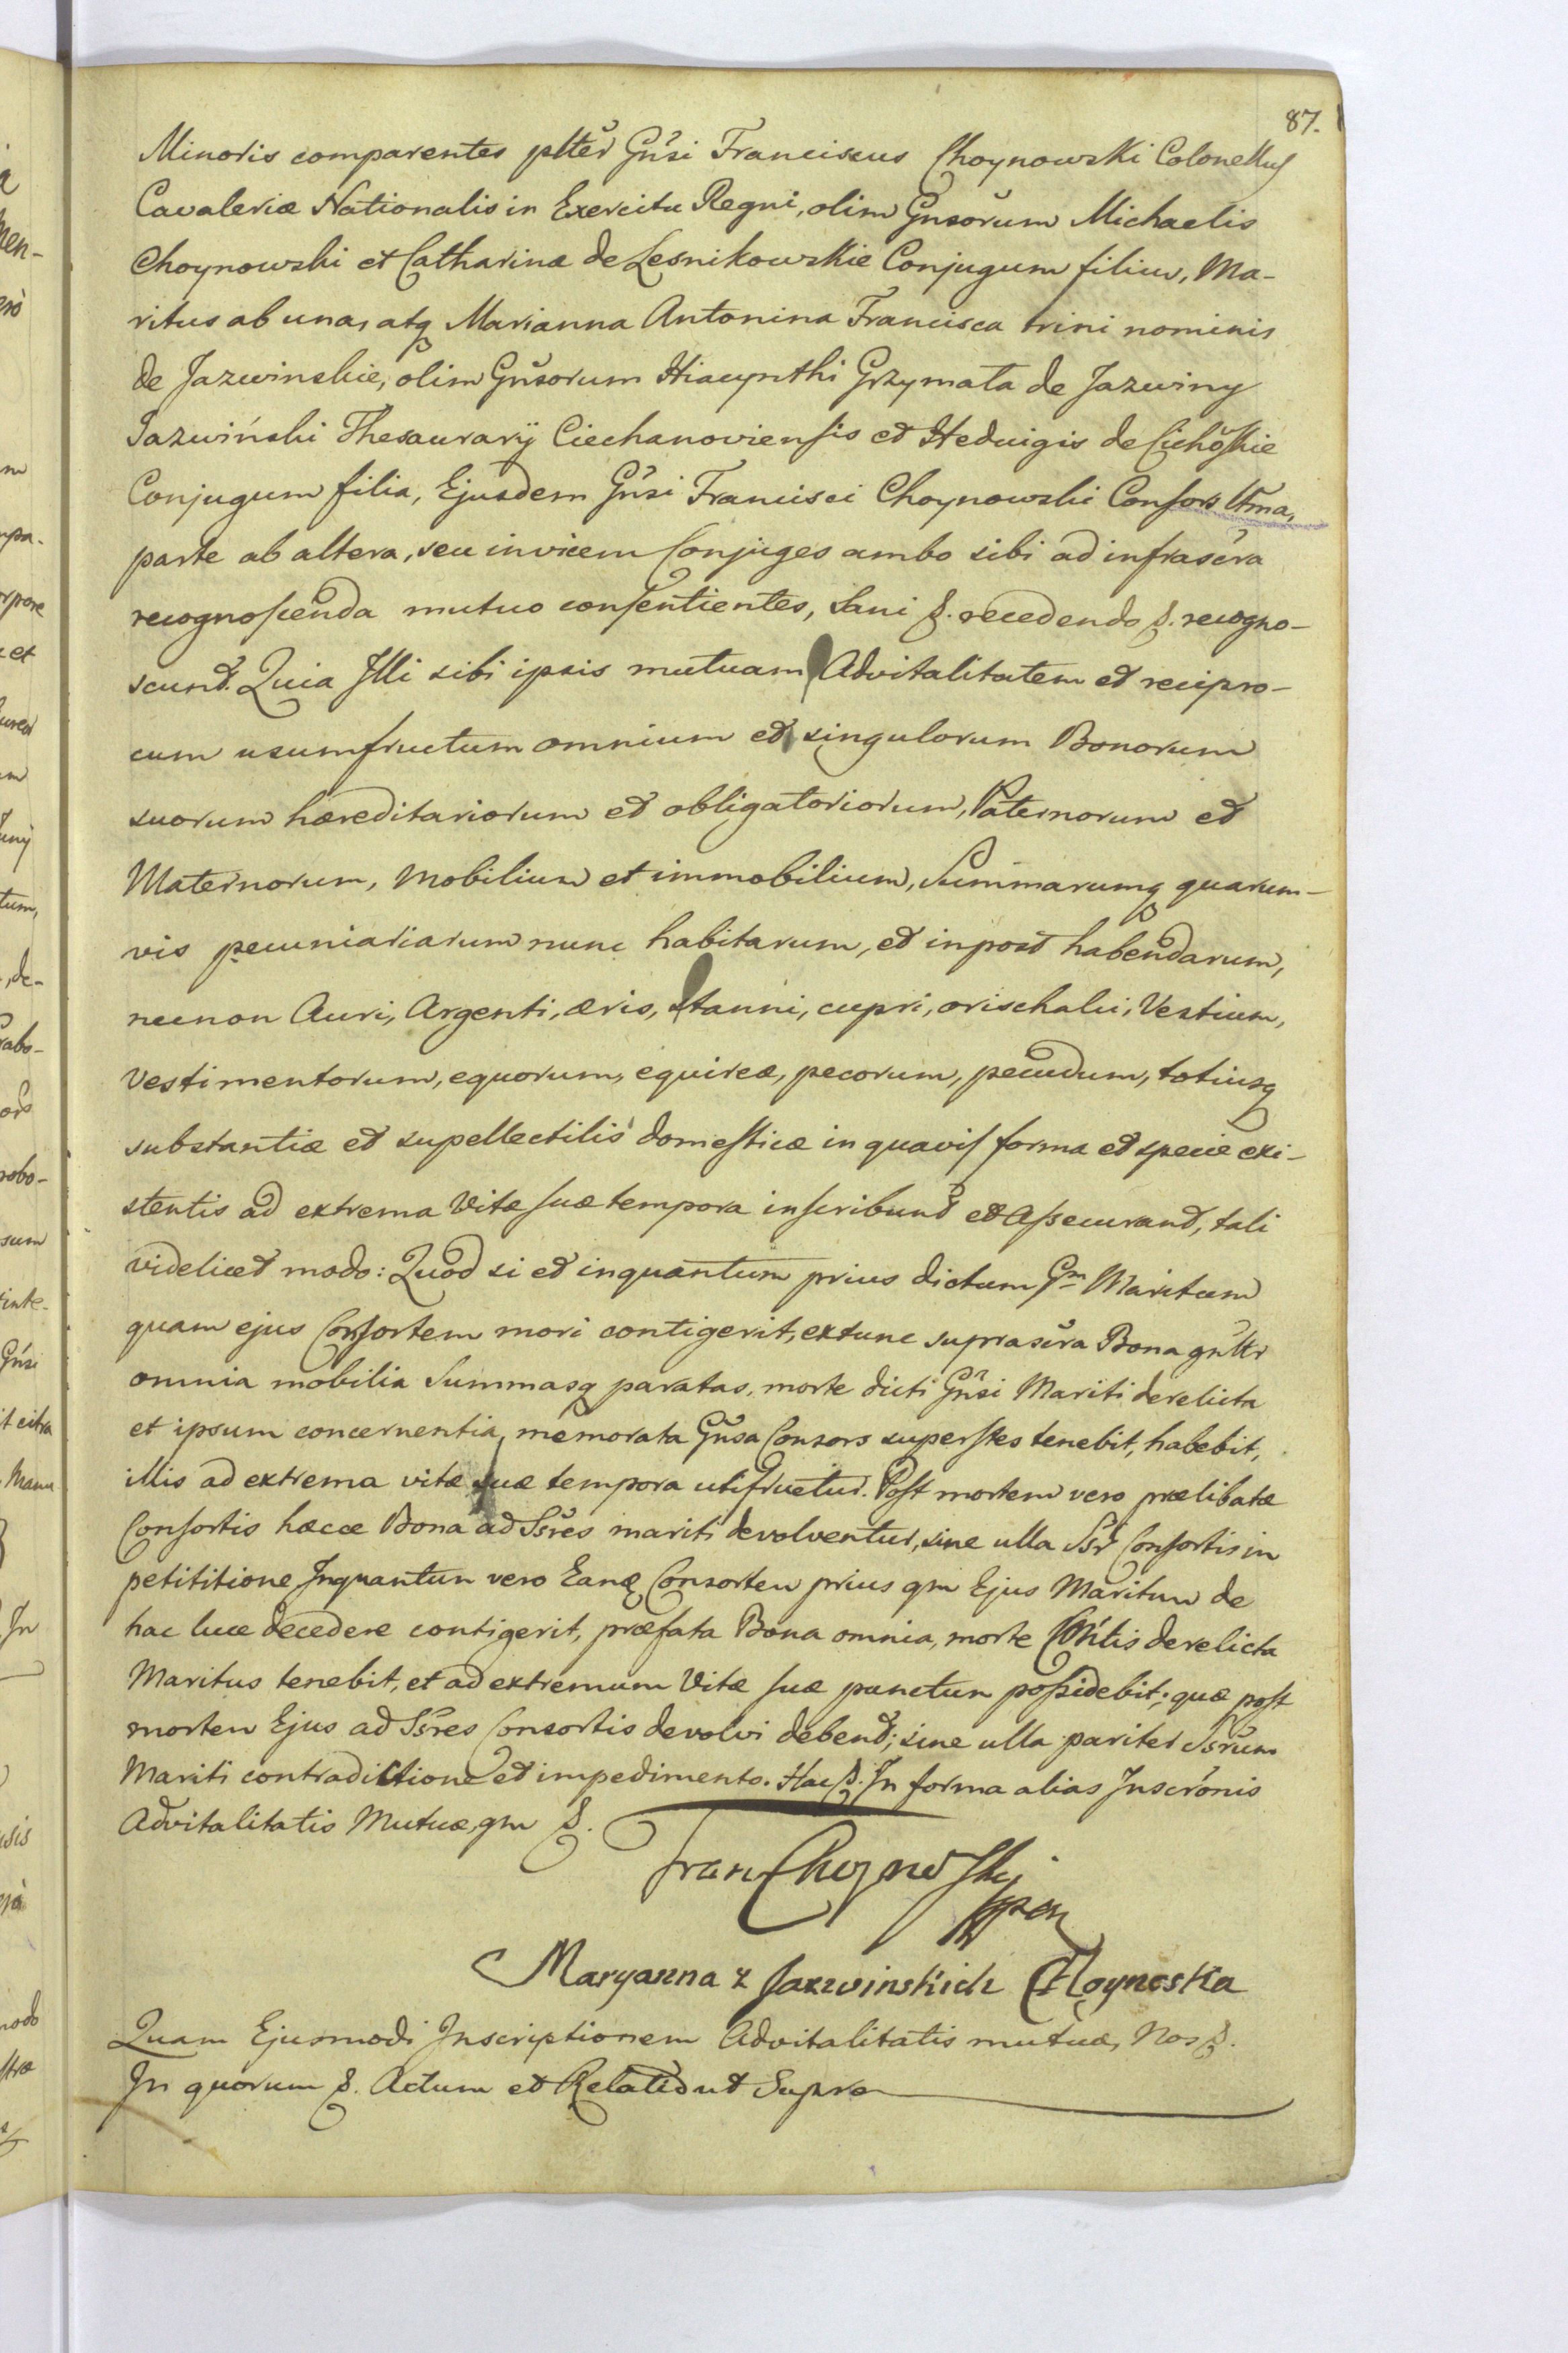 87.
Minoris comparentes plter Gnsi Franciscus Choynowski Colonellus
Cavaleriæ Nationalis in Exercitu Regni, olim Gnsorum Michaelis
Choynowski et Catharinæ de Lesnikowskie Conjugum filius, Ma-
ritus ab una, atq Marianna Antonina Francisca trini nominis
de Jazwinskie, olim Gnsorum Hiacynthi Grzymała de Jazwiny
Jazwiński Thesaurarij Ciechanoviensis et Hedvigis de Cichoskie
Conjugum filia, Ejusdem Gnsi Francisci Choynowski Consors Ltma,
parte ab altera, seu invicem Conjuges ambo sibi ad infrascra
recognoscenda mutuo consentientes, Sani &. recedendo &. recogno-
scunt. Quia Illi sibi ipsis mutuam Advitalitatem et recipro-
cum usumfructum omnium et singulorum Bonorum
suorum hæreditariorum et obligatoriorum, Paternorum et
Maternorum, Mobilium et immobilium, Summarumq quarum-
vis pecuniariarum nunc habitarum, et inpost habendarum,
necnon Auri, Argenti, æris, Stanni, cupri, orischalci, Vestium,
Vestimentorum, equorum, equireæ, pecorum, pecudum, totiusq
substantiæ et supellectilis domesticæ in quavis forma et specie exi-
stentis ad extrema Vitæ suæ tempora inscribunt et Assecurant, tali
videlicet modo: Quod si et inquantum prius dictum Gm Maritum
quam ejus Consortem mori contigerit, extunc suprascra Bona gnltr
omnia mobilia Summasq paratas, morte dicti Gnsi Mariti derelicta
et ipsum concernentia, memorata Gnsa Consors superstes tenebit, habebit,
illis ad extrema vitæ suæ tempora utifruetur. Post mortem vero prælibatæ
Consortis hæcce Bona ad Ssres mariti devolventur, sine ulla Ssr Consortis in
petititione Inquantum vero Eanq Consortem prius qm Ejus Maritum de
hac luce decedere contigerit, præfata Bona omnia, morte Contis derelicta
Maritus tenebit, et ad extremum Vitæ suæ punctum possidebit; quæ post
mortem Ejus ad Ssres Consortis devolvi debent; sine ulla pariter Ssrum
Mariti contradictione et impedimento. Hac &. In forma alias Inscronis
Advitalitatis Mutuæ, qm &.
Fran Choynowski
Maryanna z Jazwinskich Choynoska
Quam Ejusmodi Inscriptionem Advitalitatis mutuæ, Nos &.
In quorum &. Actum et Relatio ut Supra